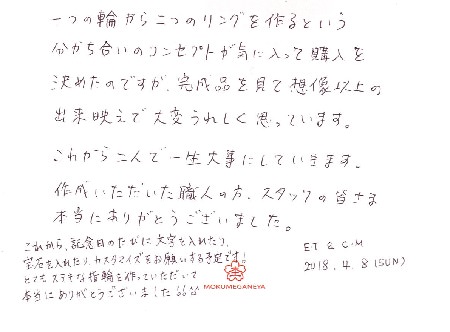 一つの輪から二つのリングを作るという
分かち合いのコンセプトが気に入って購入を
決めたのですが、完成品を見て想像以上の
出来映えで大変うれしく思っています。
これから二人で一生大事にしていきます。
作成いただいた職人の方、スタッフの皆さま
本当にありがとうございました。
これから、記念日のたびに文字を入れたり、
宝石を入れたり、カスタマイズをお願いする予定です!
とてもステキな指輪を作っていただいて
本当にありがとうございました
E.T & C.M
2018. 4. 8 (SUN)
MOKUMEGANEYA